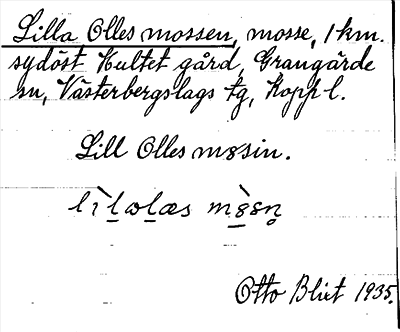 Lilla Olles mossen, mosse, 1 km.
sydöst Hultet gård, Grangärde
sn, Västerbergslags tg, Kopp l.
Lill Olles m8sin.
lìl̠ɷl̠æs m8̠̀sn̥
Otto Blixt 1935.